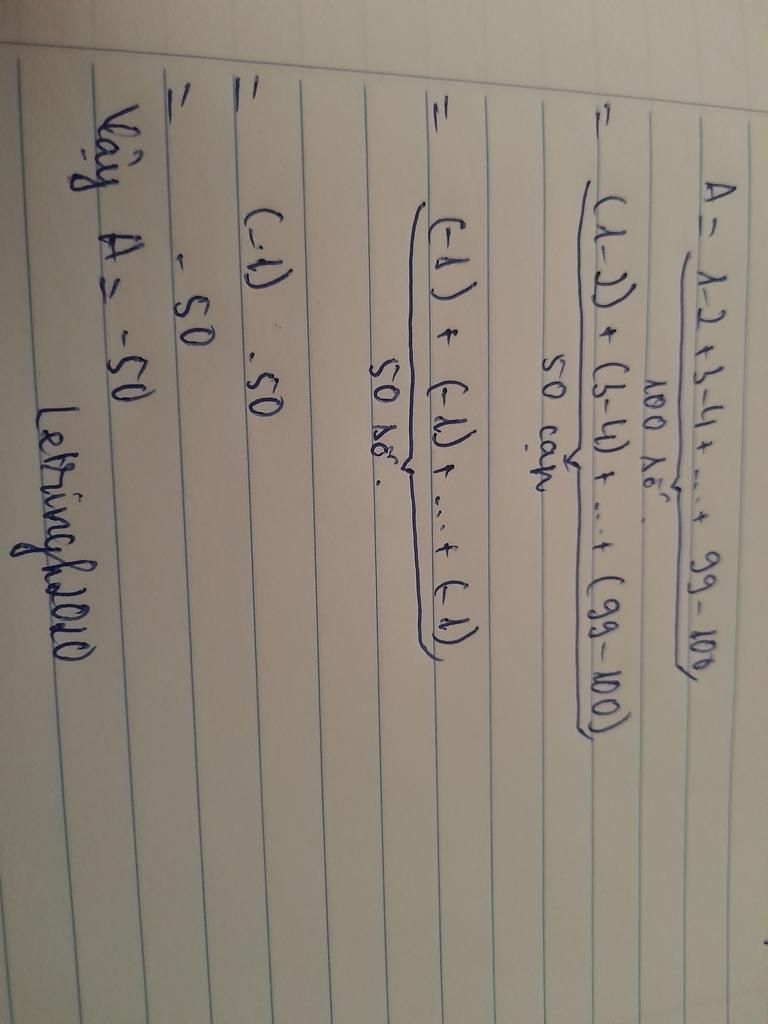 A = 1-2+3-4+...+ 99-100
100 số.
= (1-2) + (3-4) + ...+ (99-100)
50 cặp
= (-1) + (-1) + ... + (-1)
50 số.
= (-1) . 50
= -50
Vậy A = -50